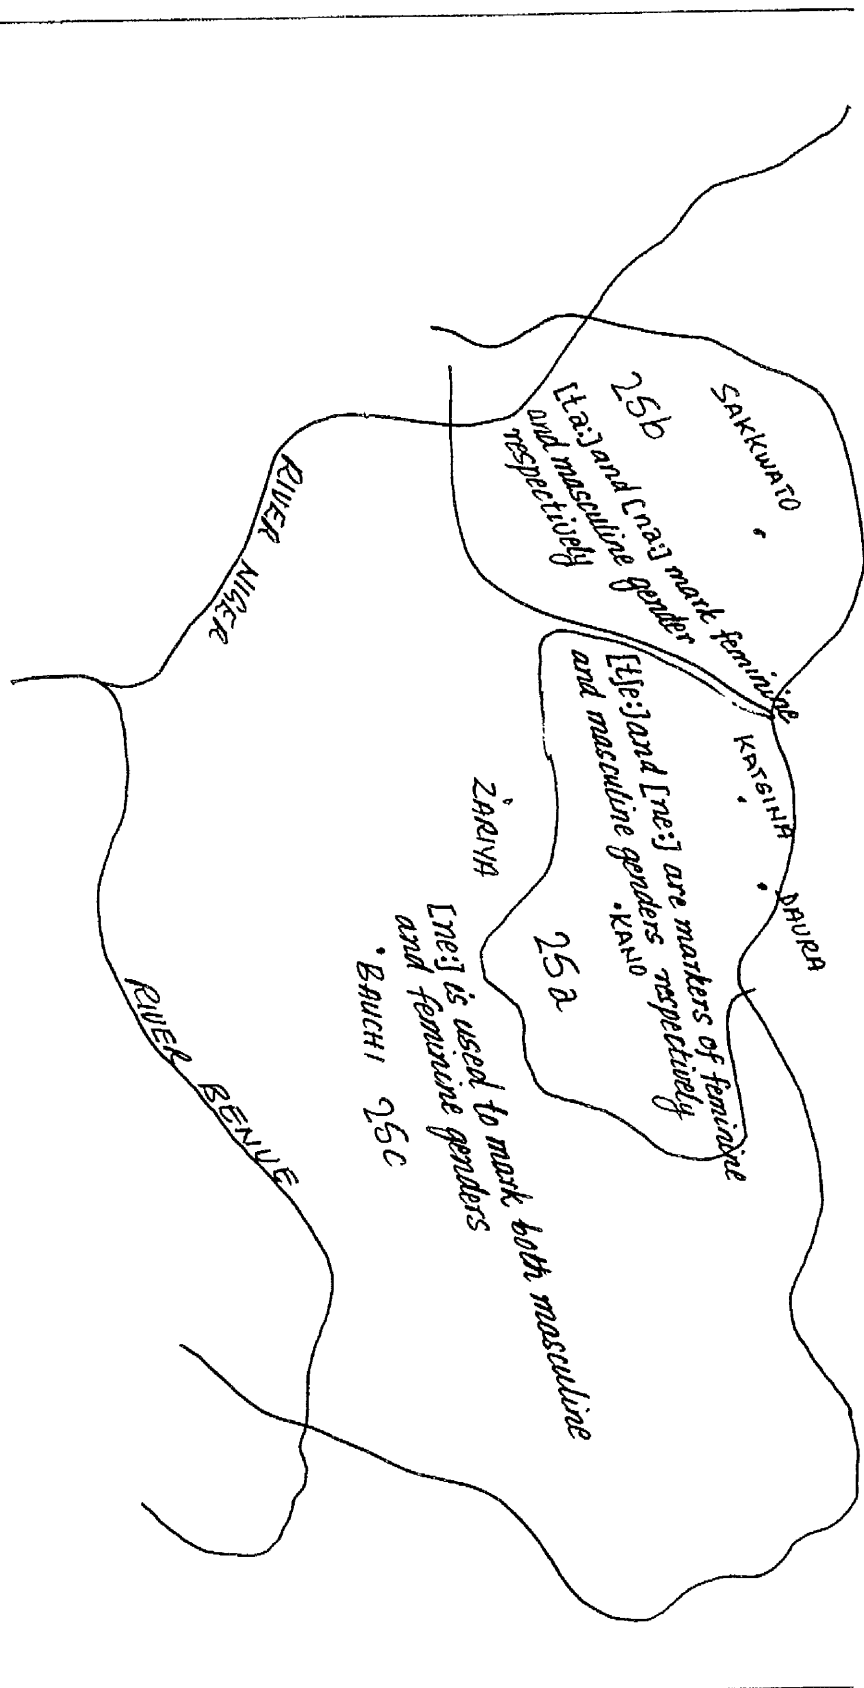 SAKKWATO
25b
[ta:] and [na:] mark feminine
and masculine gender
respectively
KATSINA
DAURA
[tʃe:] and [ne:] are markers of feminine
and masculine genders respectively
KANO
25a
ZARIYA
[ne:] is used to mark both masculine
and feminine genders
BAUCHI 25c
RIVER NIGER
RIVER BENUE